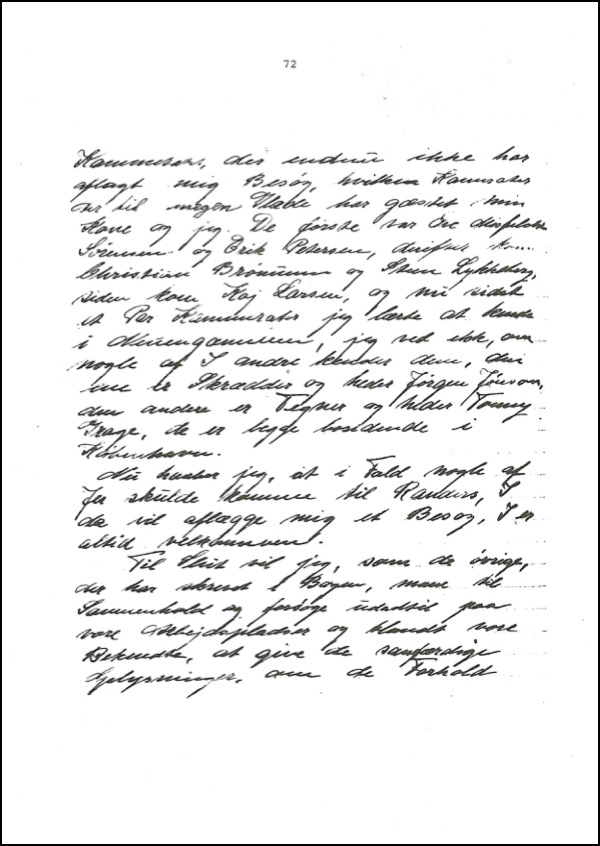 72
Kammerater, der endnu ikke har
aflagt mig Besøg, hvilken Kammerater
der til megen Glæde har gæstet min
Kone og jeg. De første var
Sørensen og Erik Petersen,
Christian Brønnum og Steen Lykkeberg,
siden kom Kaj Larsen, og nu sidst
et Par Kammerater jeg lærte at kende
i Neuengamme, jeg ved ikke, om
nogle af I andre kender dem, den
ene er Skrædder og heder Jørgen
den andre er Tegner og heder Tommy
de er begge bosidende i
København.
Nu haaber jeg, at i Fald nogle af
Jer skulde komme til Randers, I
da vil aflægge mig et Besøg, I er
altid velkommen.
Til Slut vil jeg, som de øvrige,
der har skrevet i Bogen, mane til
Sammenhold og forsøge udadtil paa
vore Arbejdspladser og blandt vore
Bekendte, at give de sandfærdige
Oplysninger, om de Forhold